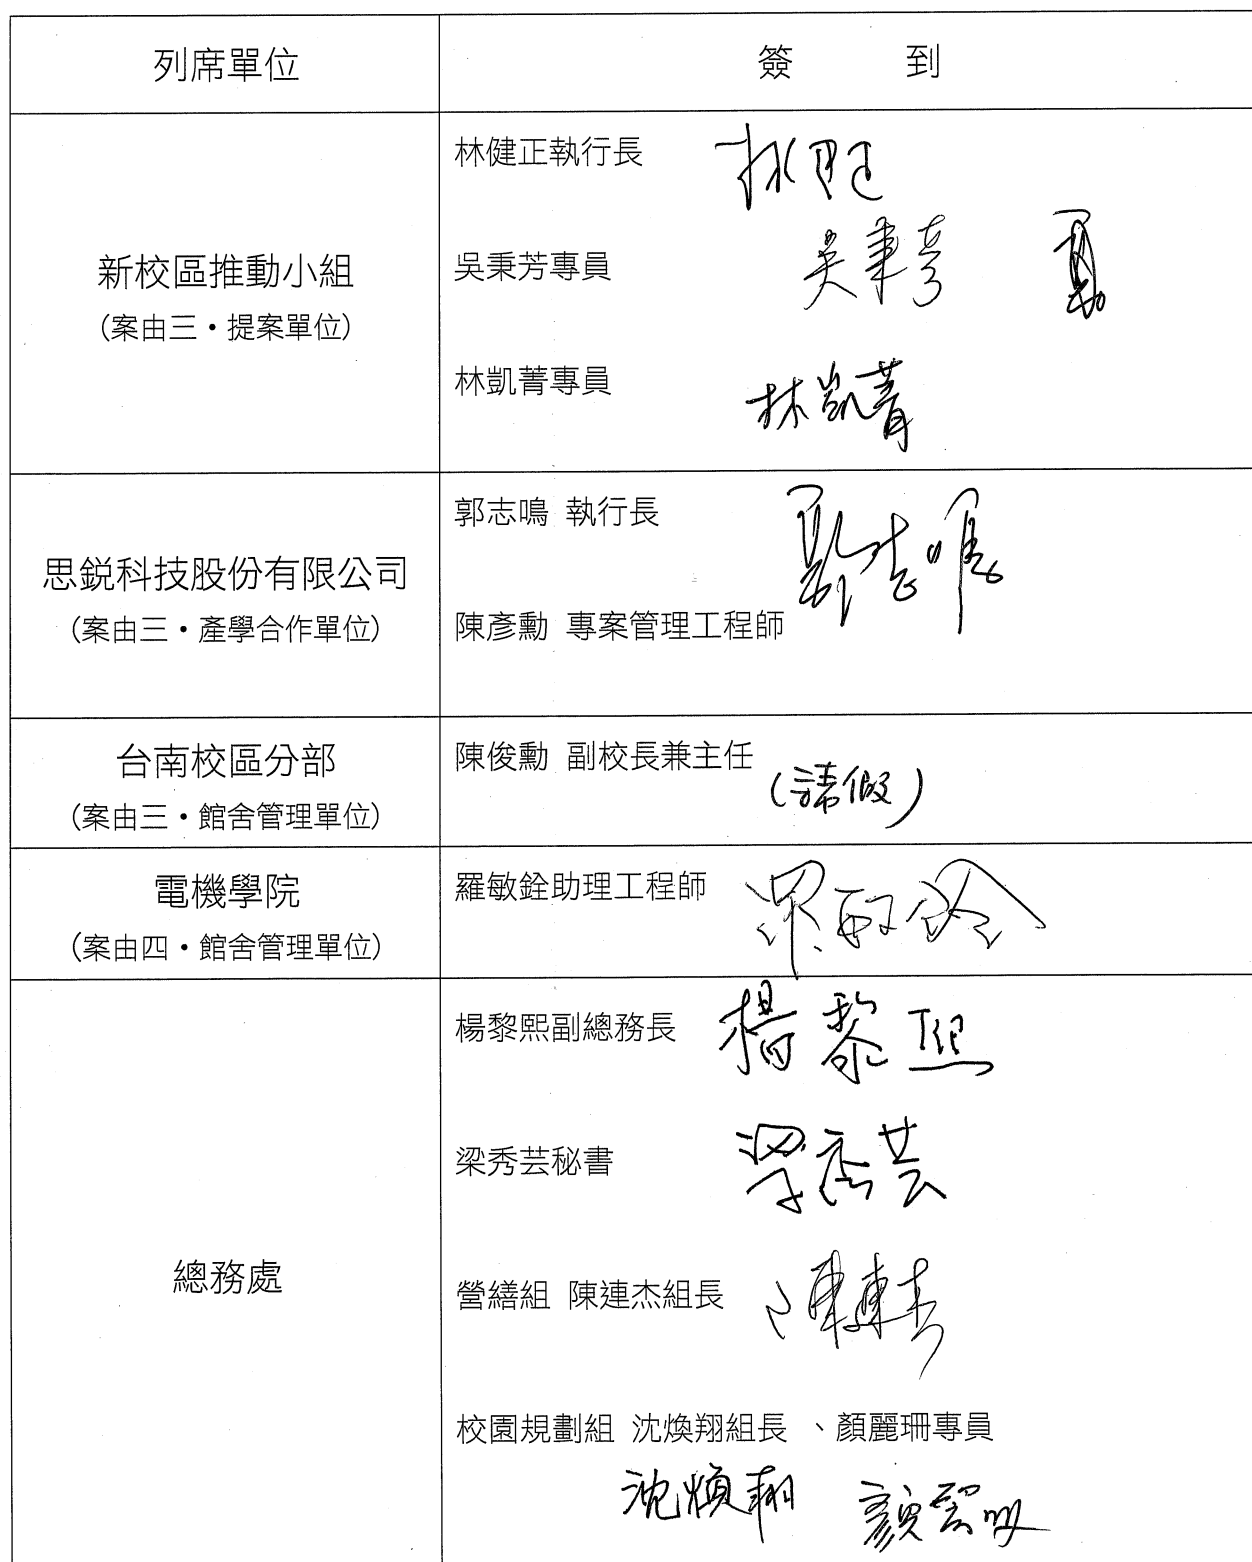 列席單位
簽 到
新校區推動小組
(案由三・提案單位)
林健正執行長
吳秉芳專員 吳秉芳
林凱菁專員 林凱菁
思銳科技股份有限公司
(案由三・產學合作單位)
郭志鳴 執行長 郭志鳴
陳彥勳 專案管理工程師
台南校區分部
(案由三・館舍管理單位)
陳俊勳 副校長兼主任 (請假)
電機學院
(案由四・館舍管理單位)
羅敏銓助理工程師 羅敏銓
總務處
楊黎熙副總務長 楊黎熙
梁秀芸秘書 梁秀芸
營繕組 陳連杰組長 陳連杰
校園規劃組 沈煥翔組長 、顏麗珊專員
沈煥翔 顏麗珊